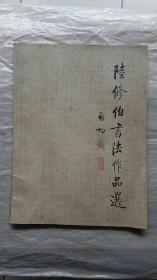 陸修伯書法作品選
啟功籤